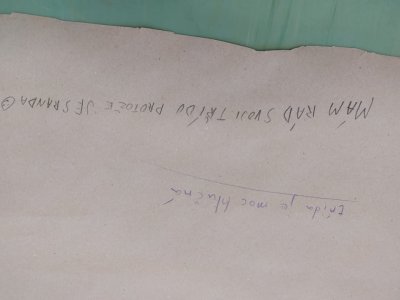 třída je moc hlučná
MÁM RÁD SVOJI TŘÍDU PROTOŽE JE SRANDA ☺